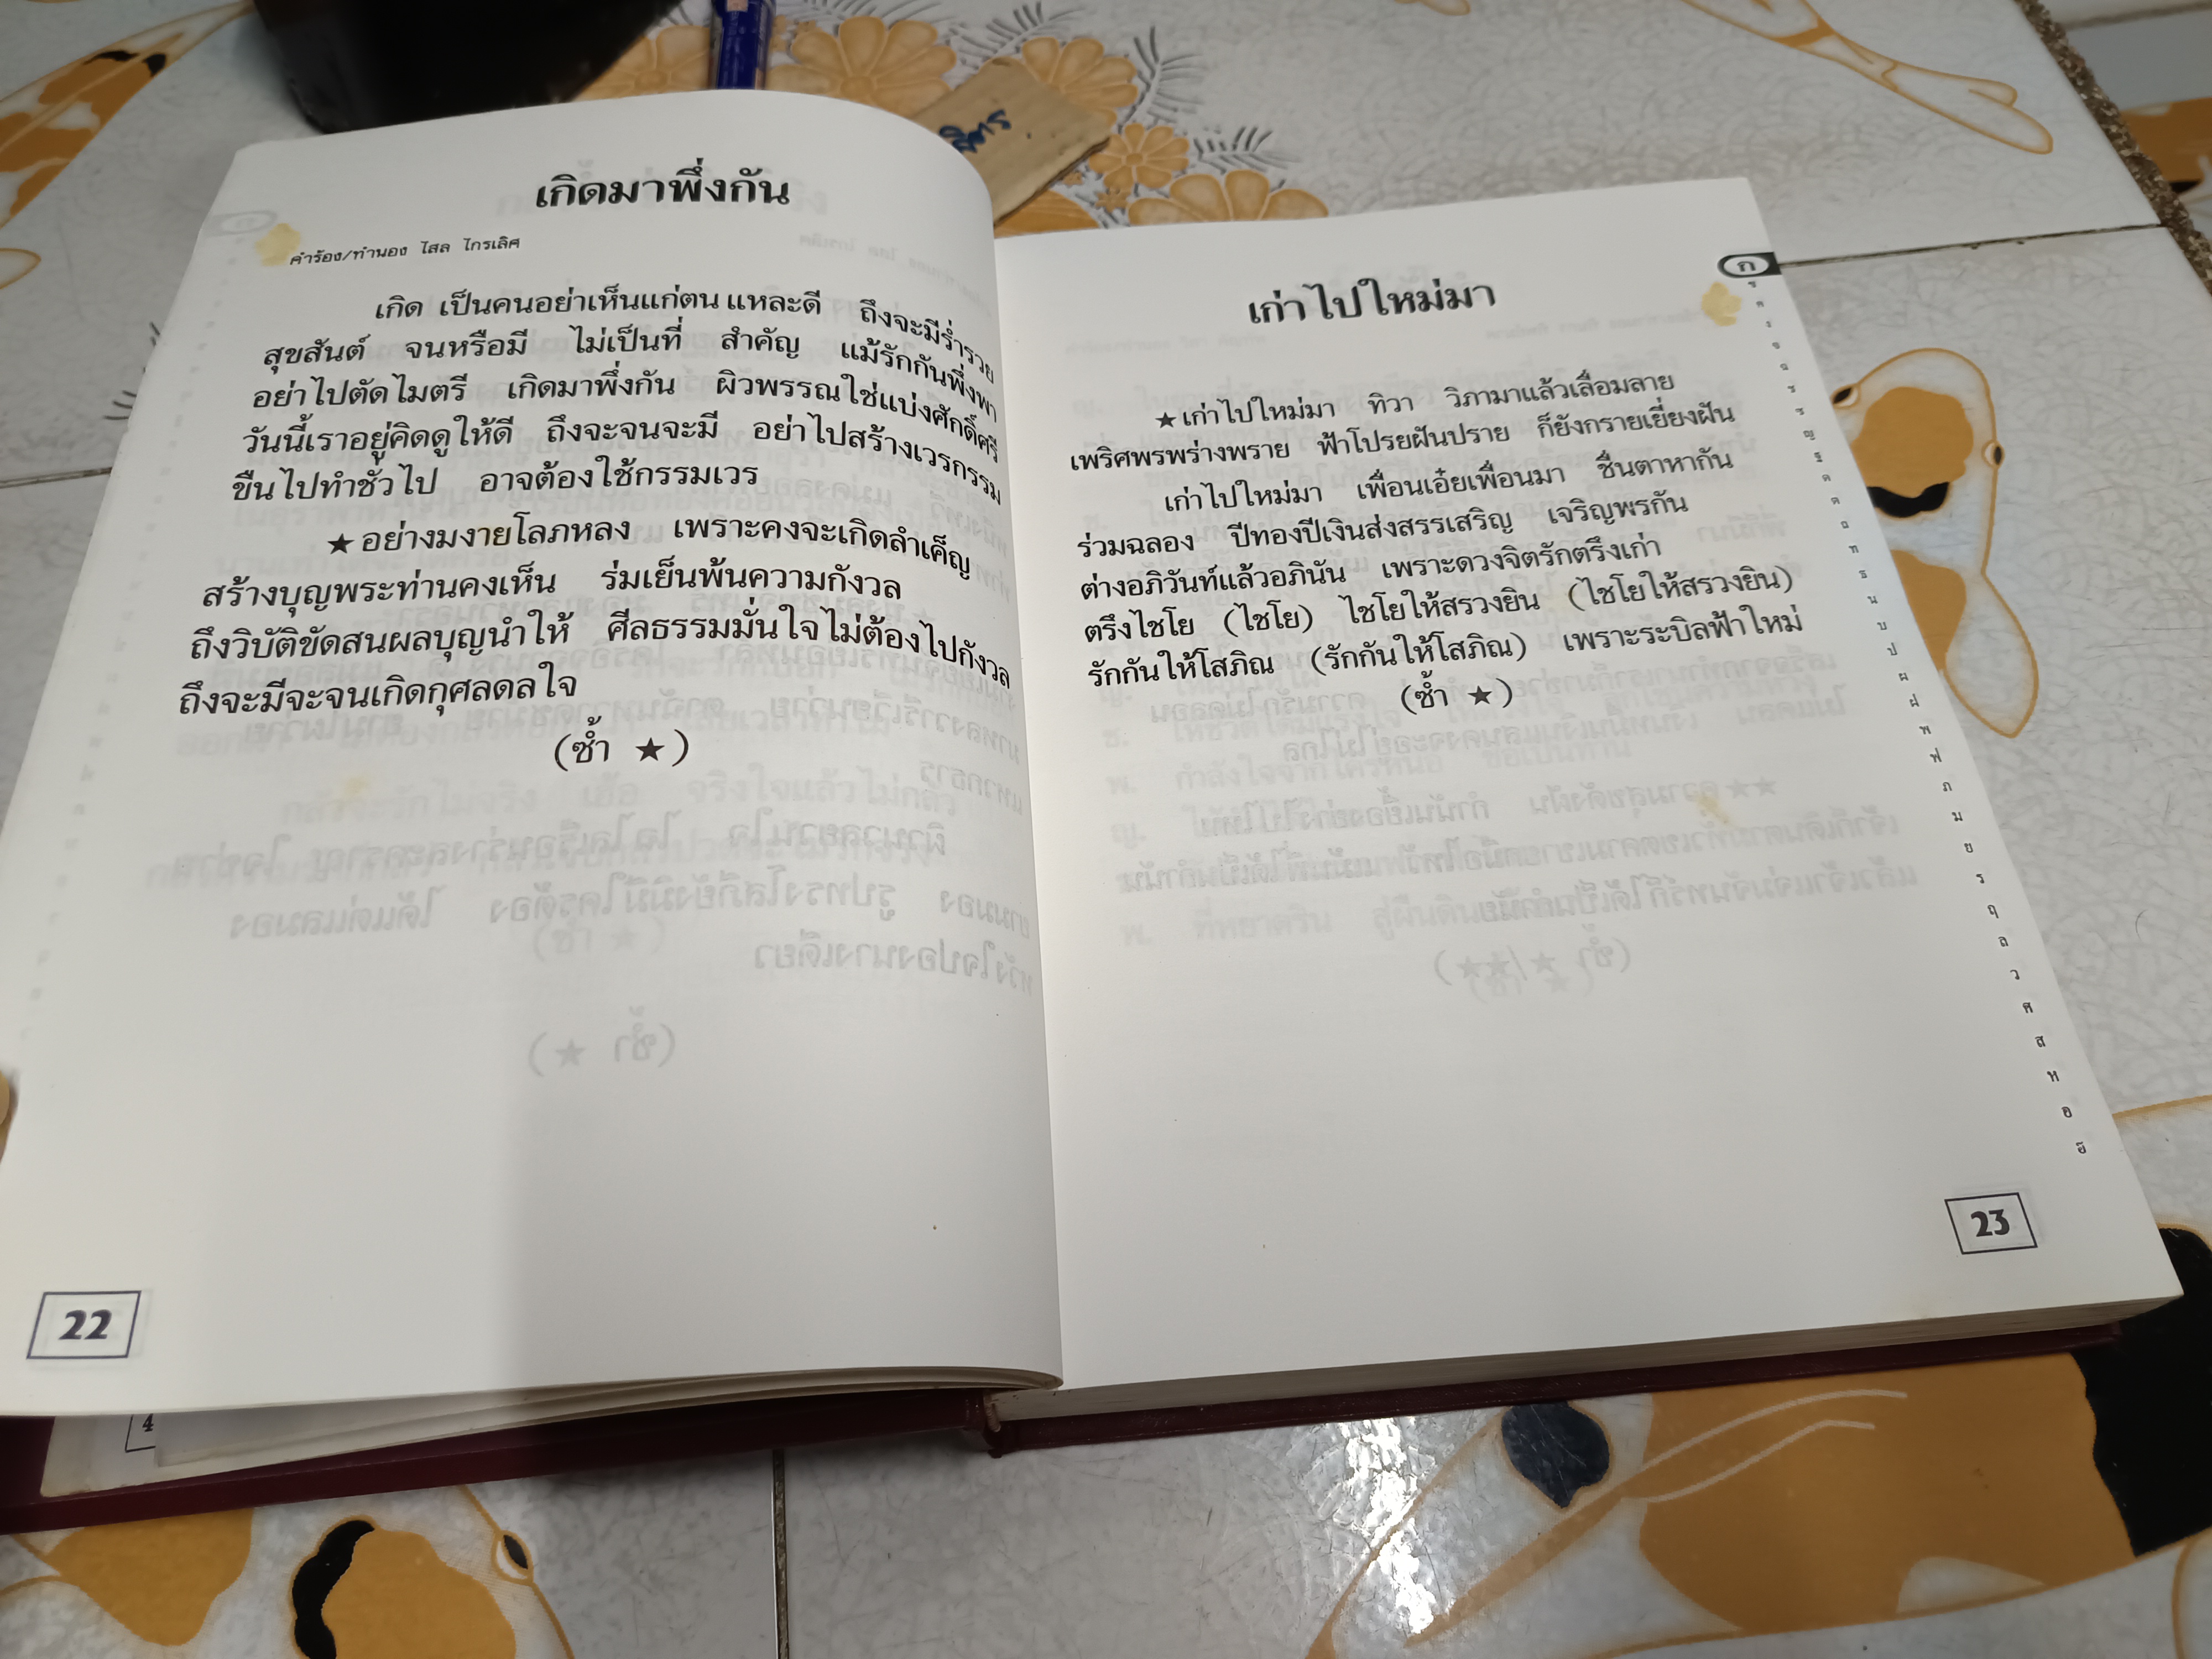 เกิดมาพึ่งกัน
คำร้อง/ทำนอง ไสล ไกรเลิศ
เกิด เป็นคนอย่าเห็นแก่ตน แหละดี ถึงจะมีร่ำรวย
สุขสันต์ จนหรือมี ไม่เป็นที่ สำคัญ แม้รักกันพึ่งพา
อย่าไปตัดไมตรี เกิดมาพึ่งกัน ผิวพรรณใช่แบ่งศักดิ์ศรี
วันนี้เราอยู่คิดดูให้ดี ถึงจะจนจะมี อย่าไปสร้างเวรกรรม
ขืนไปทำชั่วไป อาจต้องใช้กรรมเวร
★ อย่างมงายโลภหลง เพราะคงจะเกิดลำเค็ญ
สร้างบุญพระท่านคงเห็น ร่มเย็นพ้นความกังวล
ถึงวิบัติขัดสนผลบุญนำให้ ศีลธรรมมั่นใจไม่ต้องไปกังวล
ถึงจะมีจะจนเกิดกุศลดลใจ
(ซ้ำ ★)
22
4
เก่าไปใหม่มา
★ เก่าไปใหม่มา ทิวา วิภามาแล้วเลื่อมลาย
เพริศพรพร่างพราย ฟ้าโปรยฝันปราย ก็ยังกรายเยี่ยงฝัน
เก่าไปใหม่มา เพื่อนเอ๋ยเพื่อนมา ชื่นตาหากัน
ร่วมฉลอง ปีทองปีเงินส่งสรรเสริญ เจริญพรกัน
ต่างอภิวันท์แล้วอภินัน เพราะดวงจิตรักตรึงเก่า
ตรึงไชโย (ไชโย) ไชโยให้สรวงยิน (ไชโยให้สรวงยิน)
รักกันให้โสภิณ (รักกันให้โสภิณ) เพราะระบิลฟ้าใหม่
(ซ้ำ ★)
ก
ท
ธ
น
บ
ป
ผ
ฝ
พ
ฟ
ภ
ม
ย
ร
ฤ
ล
ว
ศ
ส
ห
อ
ฮ
23